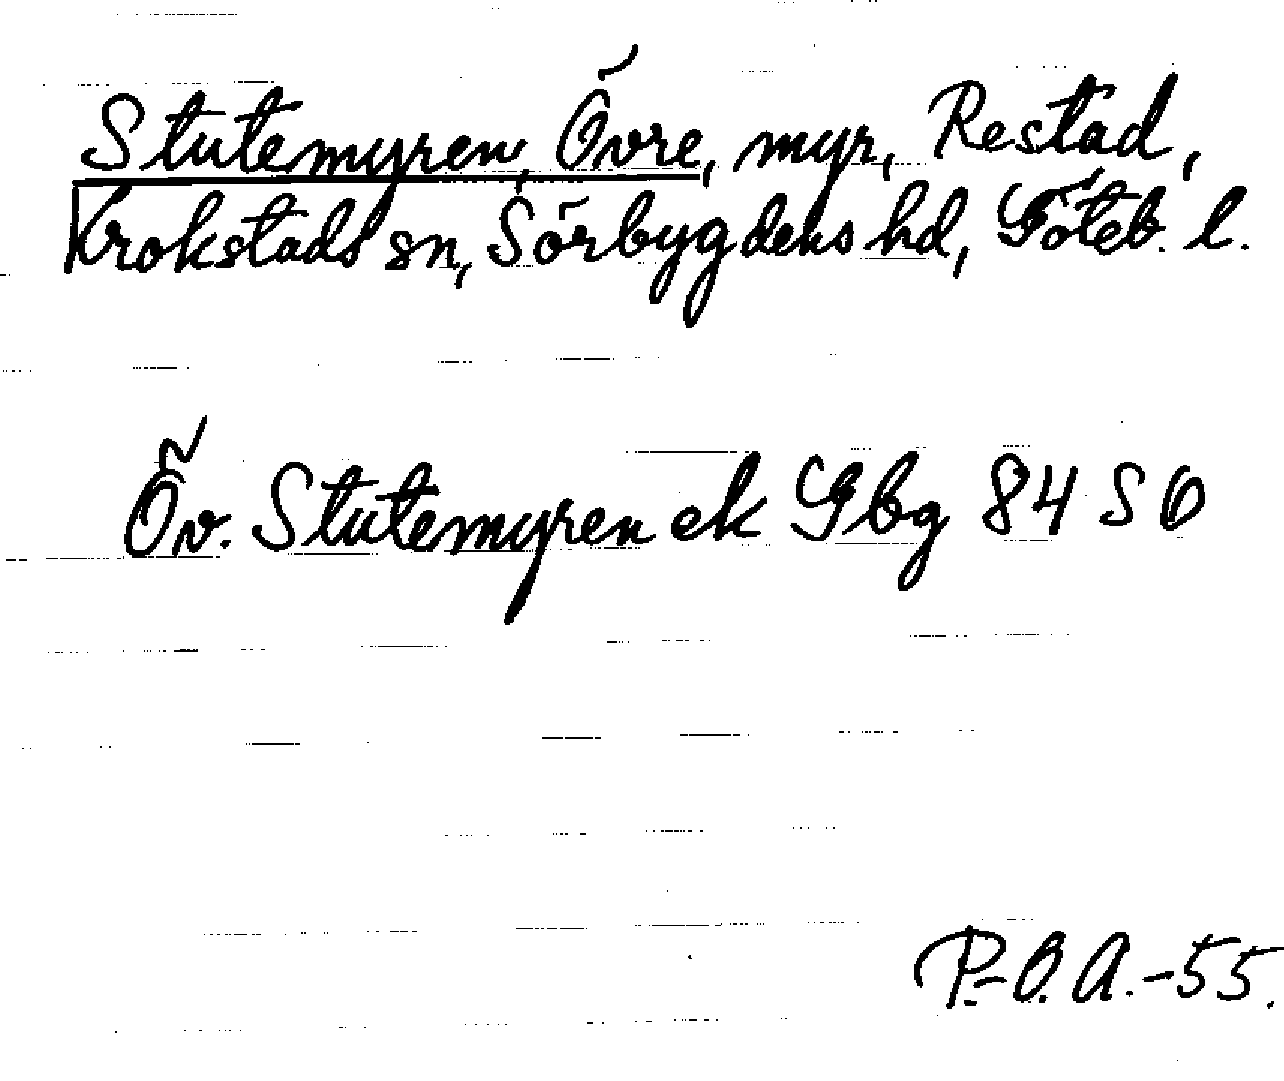 Stutemyren, Övre, myr, Restad,
Krokstads sn, Sörbygdens hd, Göteb. l.
Öv. Stutemyren ek Gbg 84 S O
P.-O.A.-55.